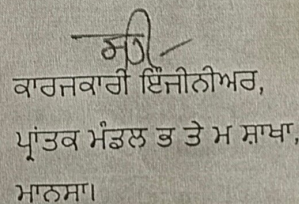 ਸਹੀ/-
ਕਾਰਜਕਾਰੀ ਇੰਜੀਨੀਅਰ,
ਪ੍ਰਾਂਤਕ ਮੰਡਲ ਭ ਤੇ ਮ ਸ਼ਾਖਾ,
ਮਾਨਸਾ।